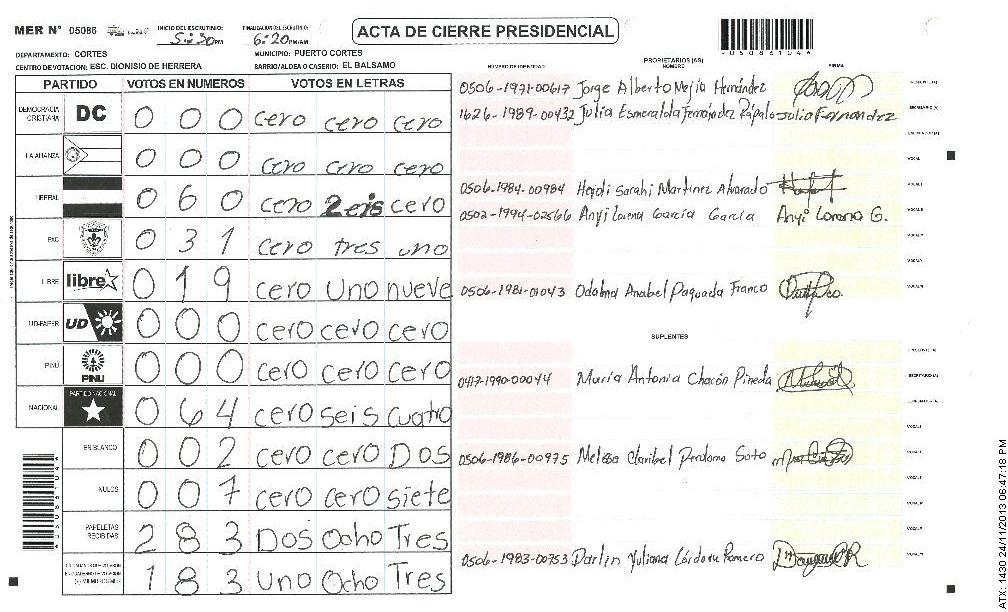 MER N° 05086 INICIO DEL ESCRUTINIO: 5:30 PM FINALIZACION DEL ESCRUTINIO: 6:20 PM/AM ACTA DE CIERRE PRESIDENCIAL
DEPARTAMENTO: CORTES MUNICIPIO: PUERTO CORTES
CENTRO DE VOTACION: ESC. DIONISIO DE HERRERA BARRIO/ALDEA O CASERIO: EL BALSAMO
PARTIDO VOTOS EN NUMEROS VOTOS EN LETRAS
DEMOCRACIA CRISTIANA DC 0 0 0 cero cero cero
LA ALIANZA 0 0 0 cero cero cero
LIBERAL 0 6 0 cero Zeis cero
PAC 0 3 1 cero tres uno
LIBRE libre 0 1 9 cero Uno nueve
UD-FAPER UD 0 0 0 cero cero cero
PINU PINU 0 0 0 cero cero cero
NACIONAL PARTIDO NACIONAL 0 6 4 cero seis cuatro
EN BLANCO 0 0 2 cero cero Dos
NULOS 0 0 7 cero cero siete
PAPELETAS RECIBIDAS 2 8 3 Dos Ocho Tres
1 8 3 Uno Ocho Tres
NUMERO DE IDENTIDAD PROPIETARIOS (AS) NOMBRE FIRMA
0506-1971-00617 Jorge Alberto Mejía Hernández
1626-1989-00432 Julia Esmeralda Fernández Rápalo Julia Fernandez
0506-1984-00984 Heydi Sarahi Martinez Alvarado
0502-1994-02566 Anyi Lorena García García Anyi Lorena G.
0506-1981-01043 Odalma Anabel Paguada Franco
SUPLENTES
0417-1990-00044 María Antonia Chacón Pineda
0506-1986-00975 Melissa Claribel Perdomo Soto
0506-1983-00753 Darlin Yuliana Córdova Romero
ATX: 1430 24/11/2013 06:47:18 PM